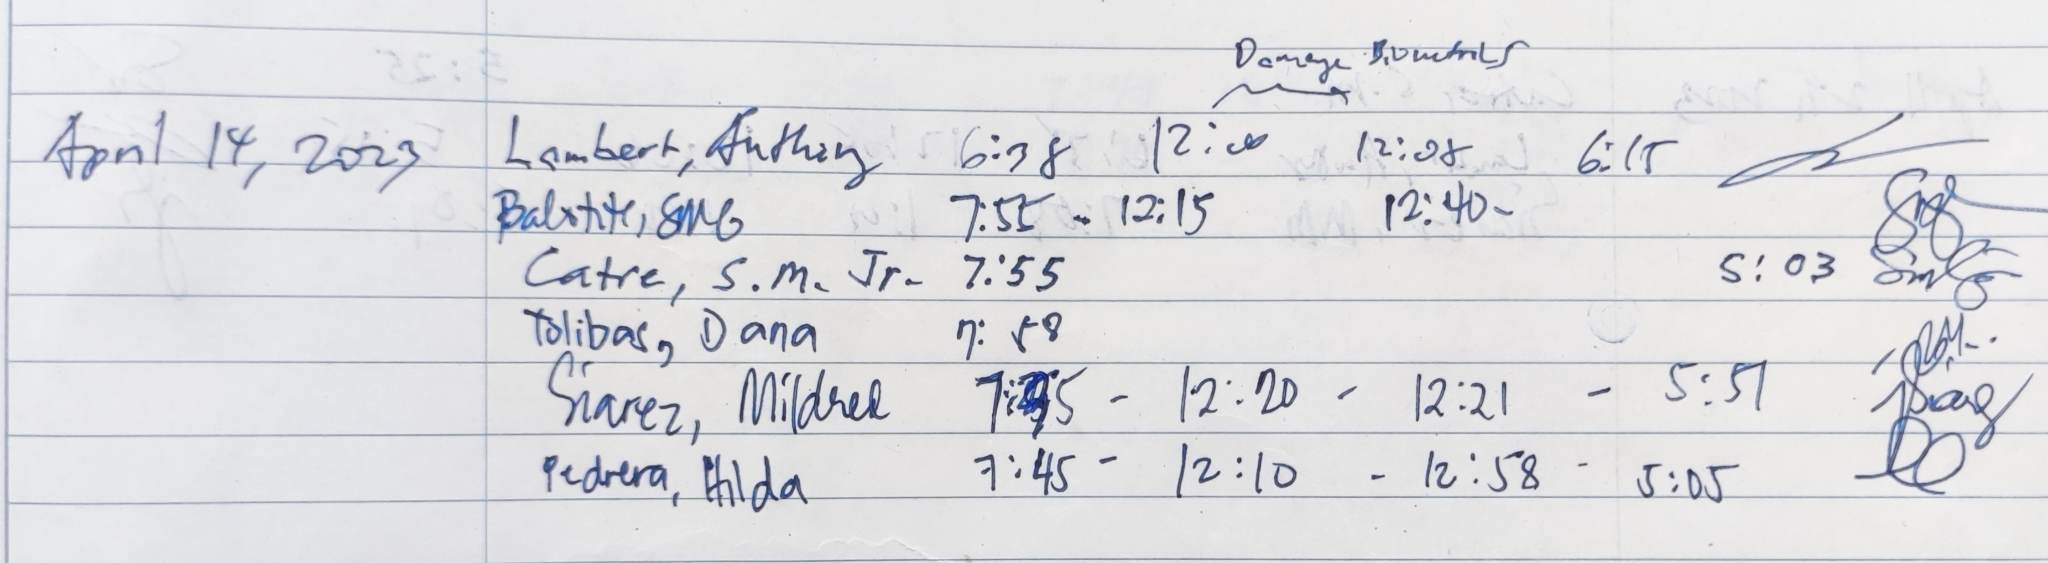 Damage Biometrics
April 14, 2023 Lambert, Anthony 6:38 12:00 12:08 6:15
Balotite, SMG 7:55 - 12:15 12:40-
Catre, S.M. Jr. 7:55 5:03
Tolibas, Dana 7:58
Siarez, Mildred 7:45 - 12:20 - 12:21 - 5:51
Pedrera, Hilda 7:45 - 12:10 - 12:58 - 5:05